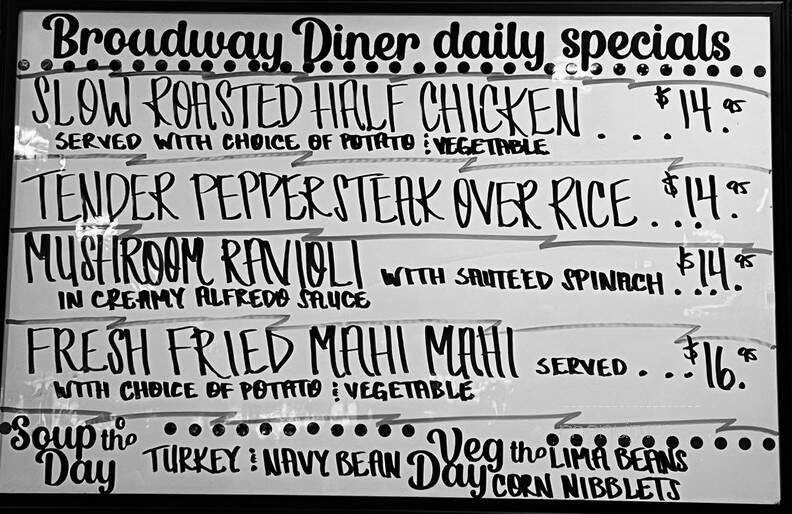 Broadway Diner daily specials
SLOW ROASTED HALF CHICKEN . . . . $14.95
SERVED WITH CHOICE OF POTATO & VEGETABLE
TENDER PEPPERSTEAK OVER RICE . . . $14.95
MUSHROOM RAVIOLI WITH SAUTEED SPINACH . . . $14.95
IN CREAMY ALFREDO SAUCE
FRESH FRIED MAHI MAHI SERVED . . . $16.95
WITH CHOICE OF POTATO & VEGETABLE
Soup of the Day TURKEY & NAVY BEAN
Veg of the Day LIMA BEANS
CORN NIBBLETS